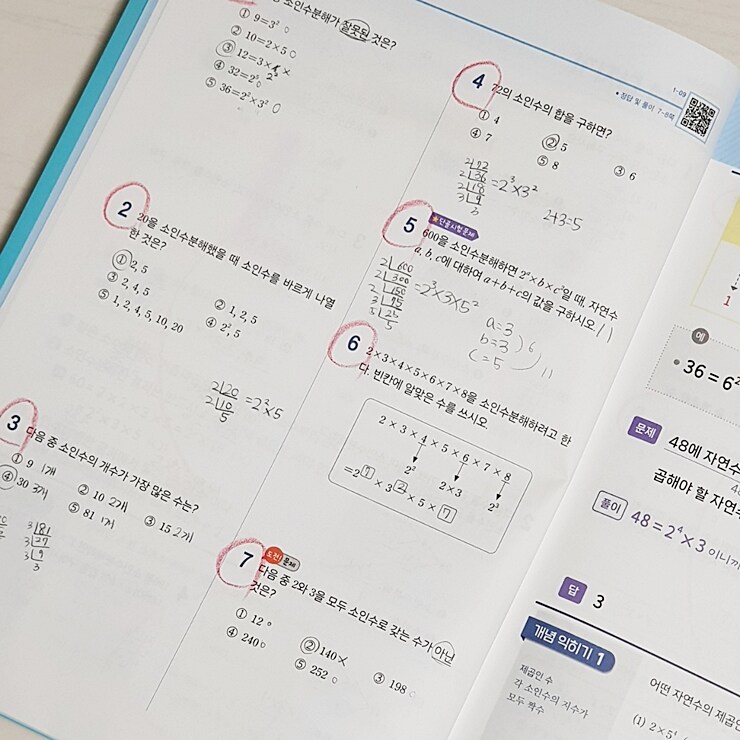 소인수분해가 잘못된 것은?
① 9=3² ○
② 10=2×5 ○
③ 12=3×4 ×
2²
④ 32=2⁵ ○
⑤ 36=2²×3² ○
2
20을 소인수분해했을 때 소인수를 바르게 나열
한 것은?
① 2, 5
② 1, 2, 5
③ 2, 4, 5
④ 2², 5
⑤ 1, 2, 4, 5, 10, 20
2 20
2 10 =2²×5
5
3
다음 중 소인수의 개수가 가장 많은 수는?
① 9 1개
② 10 2개
③ 15 2개
④ 30 3개
⑤ 81 1개
3 81
3 27
3 9
3
1-09
• 정답 및 풀이 7~8쪽
4
72의 소인수의 합을 구하면?
① 4
② 5
③ 6
④ 7
⑤ 8
2 72
2 36 =2³×3²
2 18
3 9
3
2+3=5
5
★단골시험문제
600을 소인수분해하면 2ᵃ×b×c²일 때, 자연수
a, b, c에 대하여 a+b+c의 값을 구하시오.
2 600
2 300 =2³×3×5²
2 150
3 75
5 25
5
a=3
b=3 6
c=5 11
6
2×3×4×5×6×7×8을 소인수분해하려고 한
다. 빈칸에 알맞은 수를 쓰시오.
2×3×4×5×6×7×8
2² 2×3 2³
=2⁷×3²×5×7
7
도전! 문제
다음 중 2와 3을 모두 소인수로 갖는 수가 아닌
것은?
① 12 ○
② 140 ×
③ 198 ○
④ 240 ○
⑤ 252 ○
1
예
• 36=6²
문제
48에 자연수
곱해야 할 자연수
풀이
48=2⁴×3이니까
답
3
개념 익히기 1
제곱인 수
각 소인수의 지수가
모두 짝수
어떤 자연수의 제곱인